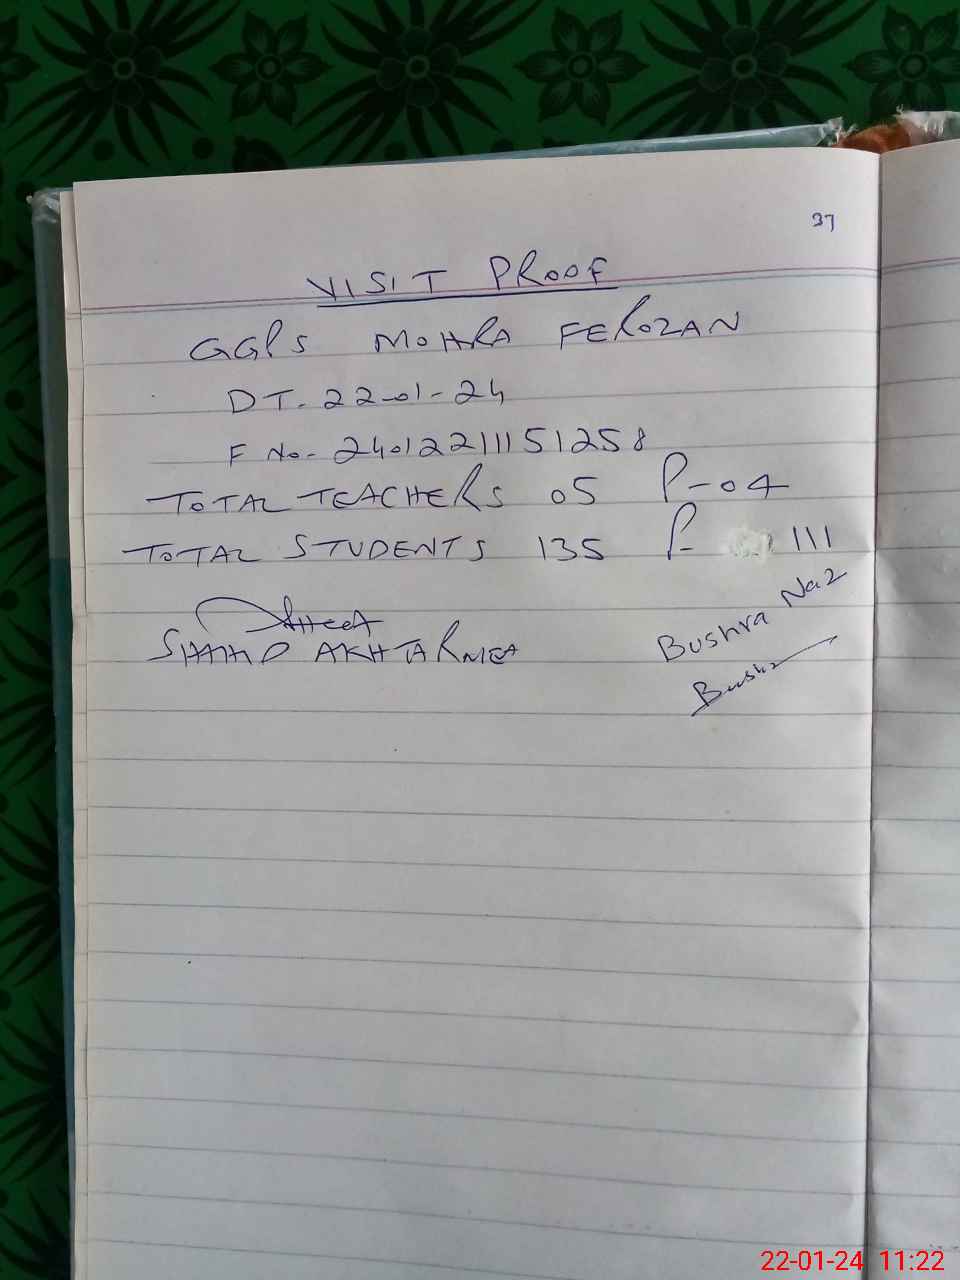 37
VISIT PROOF
GGPS MOHRA FEROZAN
DT. 22-01-24
F No- 2401221115 1258
TOTAL TEACHERS 05 P-04
TOTAL STUDENTS 135 P- 111
SHAHID AKHTAR MEA
Bushra Naz
Bushra
22-01-24 11:22